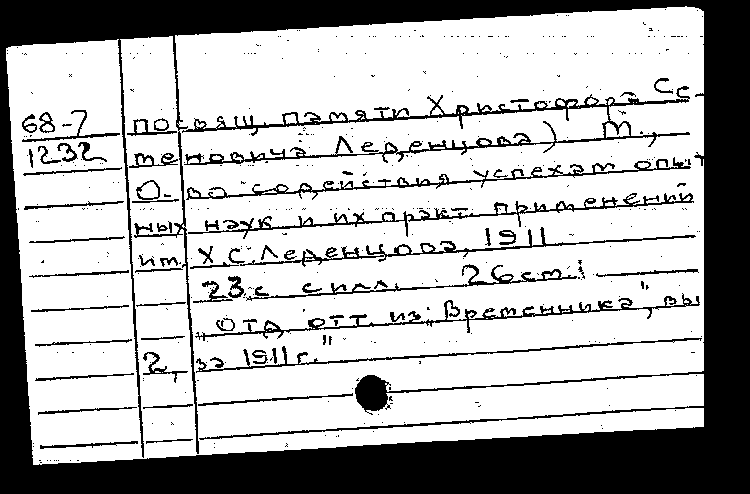 68-7 посвящ. памяти Христофора Се-
1232 меновича Леденцова) М.,
О-во содействия успехам опыт
ных наук и их практ. применений
им. Х.С.Леденцова, 1911
23 с. с илл. 26 см.
"Отд. отт. из "Временника", вы
2, за 1911 г."